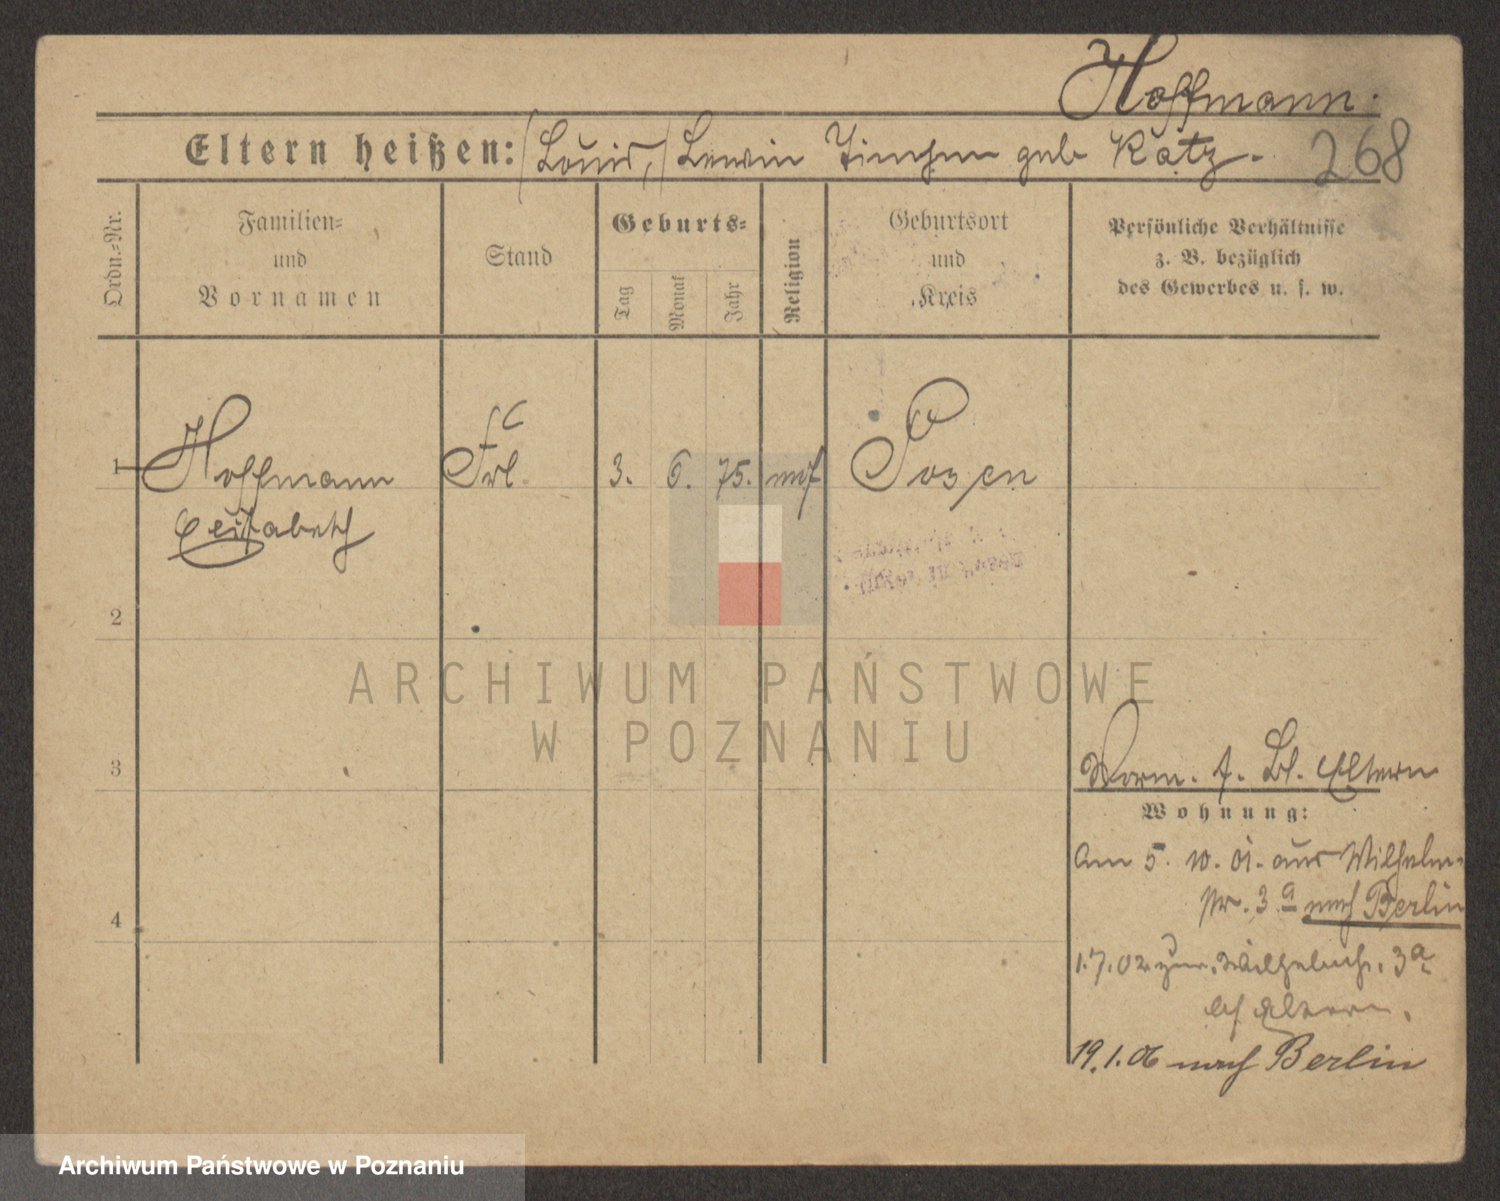 Hoffmann.
Eltern heißen: (Louis,) Lewin geb Katz. 268
Ordn.-Nr.
Familien-
und
Vornamen
Stand
Geburts-
Tag
Monat
Jahr
Religion
Geburtsort
und
Kreis
Persönliche Verhältnisse
z. B. bezüglich
des Gewerbes u. s. w.
1 Hoffmann Frl. 3. 6. 75. mos Posen
Elisabeth
2
ARCHIWUM PAŃSTWOWE
W POZNANIU
3
Eltern
Wohnung:
Am 5. 10. 01. aus Wilhelm-
str. 3a nach Berlin
4
1.7.02 zur. Wilhelmstr. 3a
bei Eltern.
19.1.06 nach Berlin
Archiwum Państwowe w Poznaniu